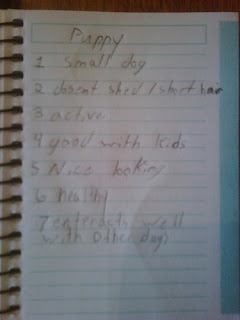 Puppy
1 Small dog
2 dosent shed / short hair
3 active
4 good with kids
5 Nice looking
6 healthy
7 enteracts well
with Other dogs